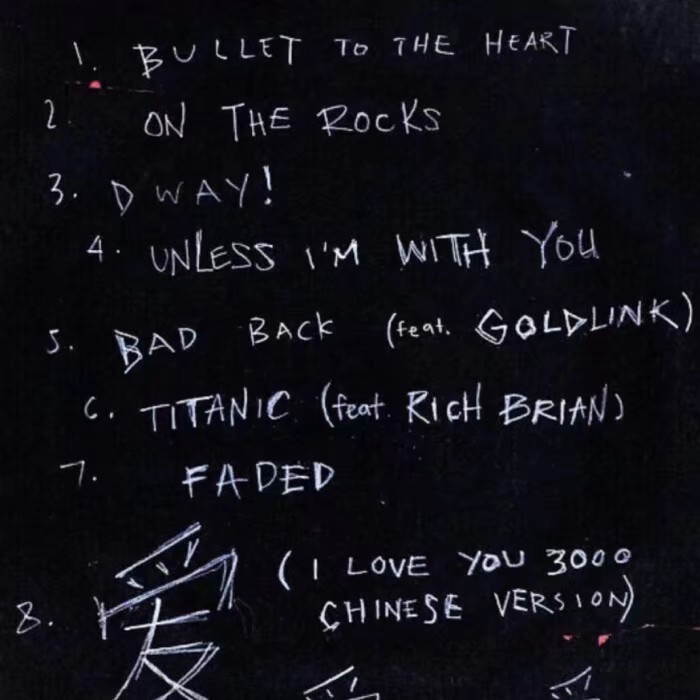 1. BULLET TO THE HEART
2. ON THE ROCKS
3. DWAY!
4. UNLESS I'M WITH YOU
5. BAD BACK (feat. GOLDLINK)
6. TITANIC (feat. RICH BRIAN)
7. FADED
8. 爱 (I LOVE YOU 3000
CHINESE VERSION)